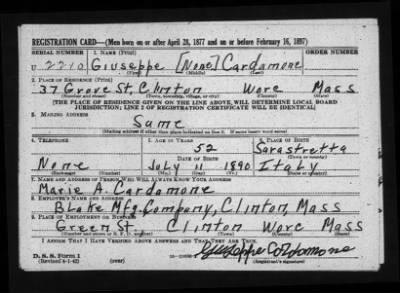 REGISTRATION CARD—(Men born on or after April 28, 1877 and on or before February 16, 1897)
SERIAL NUMBER 1. NAME (Print) ORDER NUMBER
U 2210 Giuseppe [None] Cardamone
(First) (Middle) (Last)
2. PLACE OF RESIDENCE (Print)
37 Grove St, Clinton Worc Mass
(Number and street) (Town, township, village, or city) (County) (State)
[THE PLACE OF RESIDENCE GIVEN ON THE LINE ABOVE WILL DETERMINE LOCAL BOARD
JURISDICTION; LINE 2 OF REGISTRATION CERTIFICATE WILL BE IDENTICAL]
3. MAILING ADDRESS
Same
[Mailing address if other than place indicated on line 2. If same insert word same]
4. TELEPHONE 5. AGE IN YEARS 6. PLACE OF BIRTH
52 Sarastretta
DATE OF BIRTH
None July 11 1890 Italy
(Exchange) (Number) (Mo.) (Day) (Yr.) (State or country)
7. NAME AND ADDRESS OF PERSON WHO WILL ALWAYS KNOW YOUR ADDRESS
Marie A. Cardamone
8. EMPLOYER'S NAME AND ADDRESS
Blake Mfg. Company, Clinton, Mass
9. PLACE OF EMPLOYMENT OR BUSINESS
Green St. Clinton Worc Mass
(Number and street or R. F. D. number) (Town) (County) (State)
I AFFIRM THAT I HAVE VERIFIED ABOVE ANSWERS AND THAT THEY ARE TRUE.
D. S. S. Form 1
(Revised 4-1-42) (over)
(Registrant's signature)